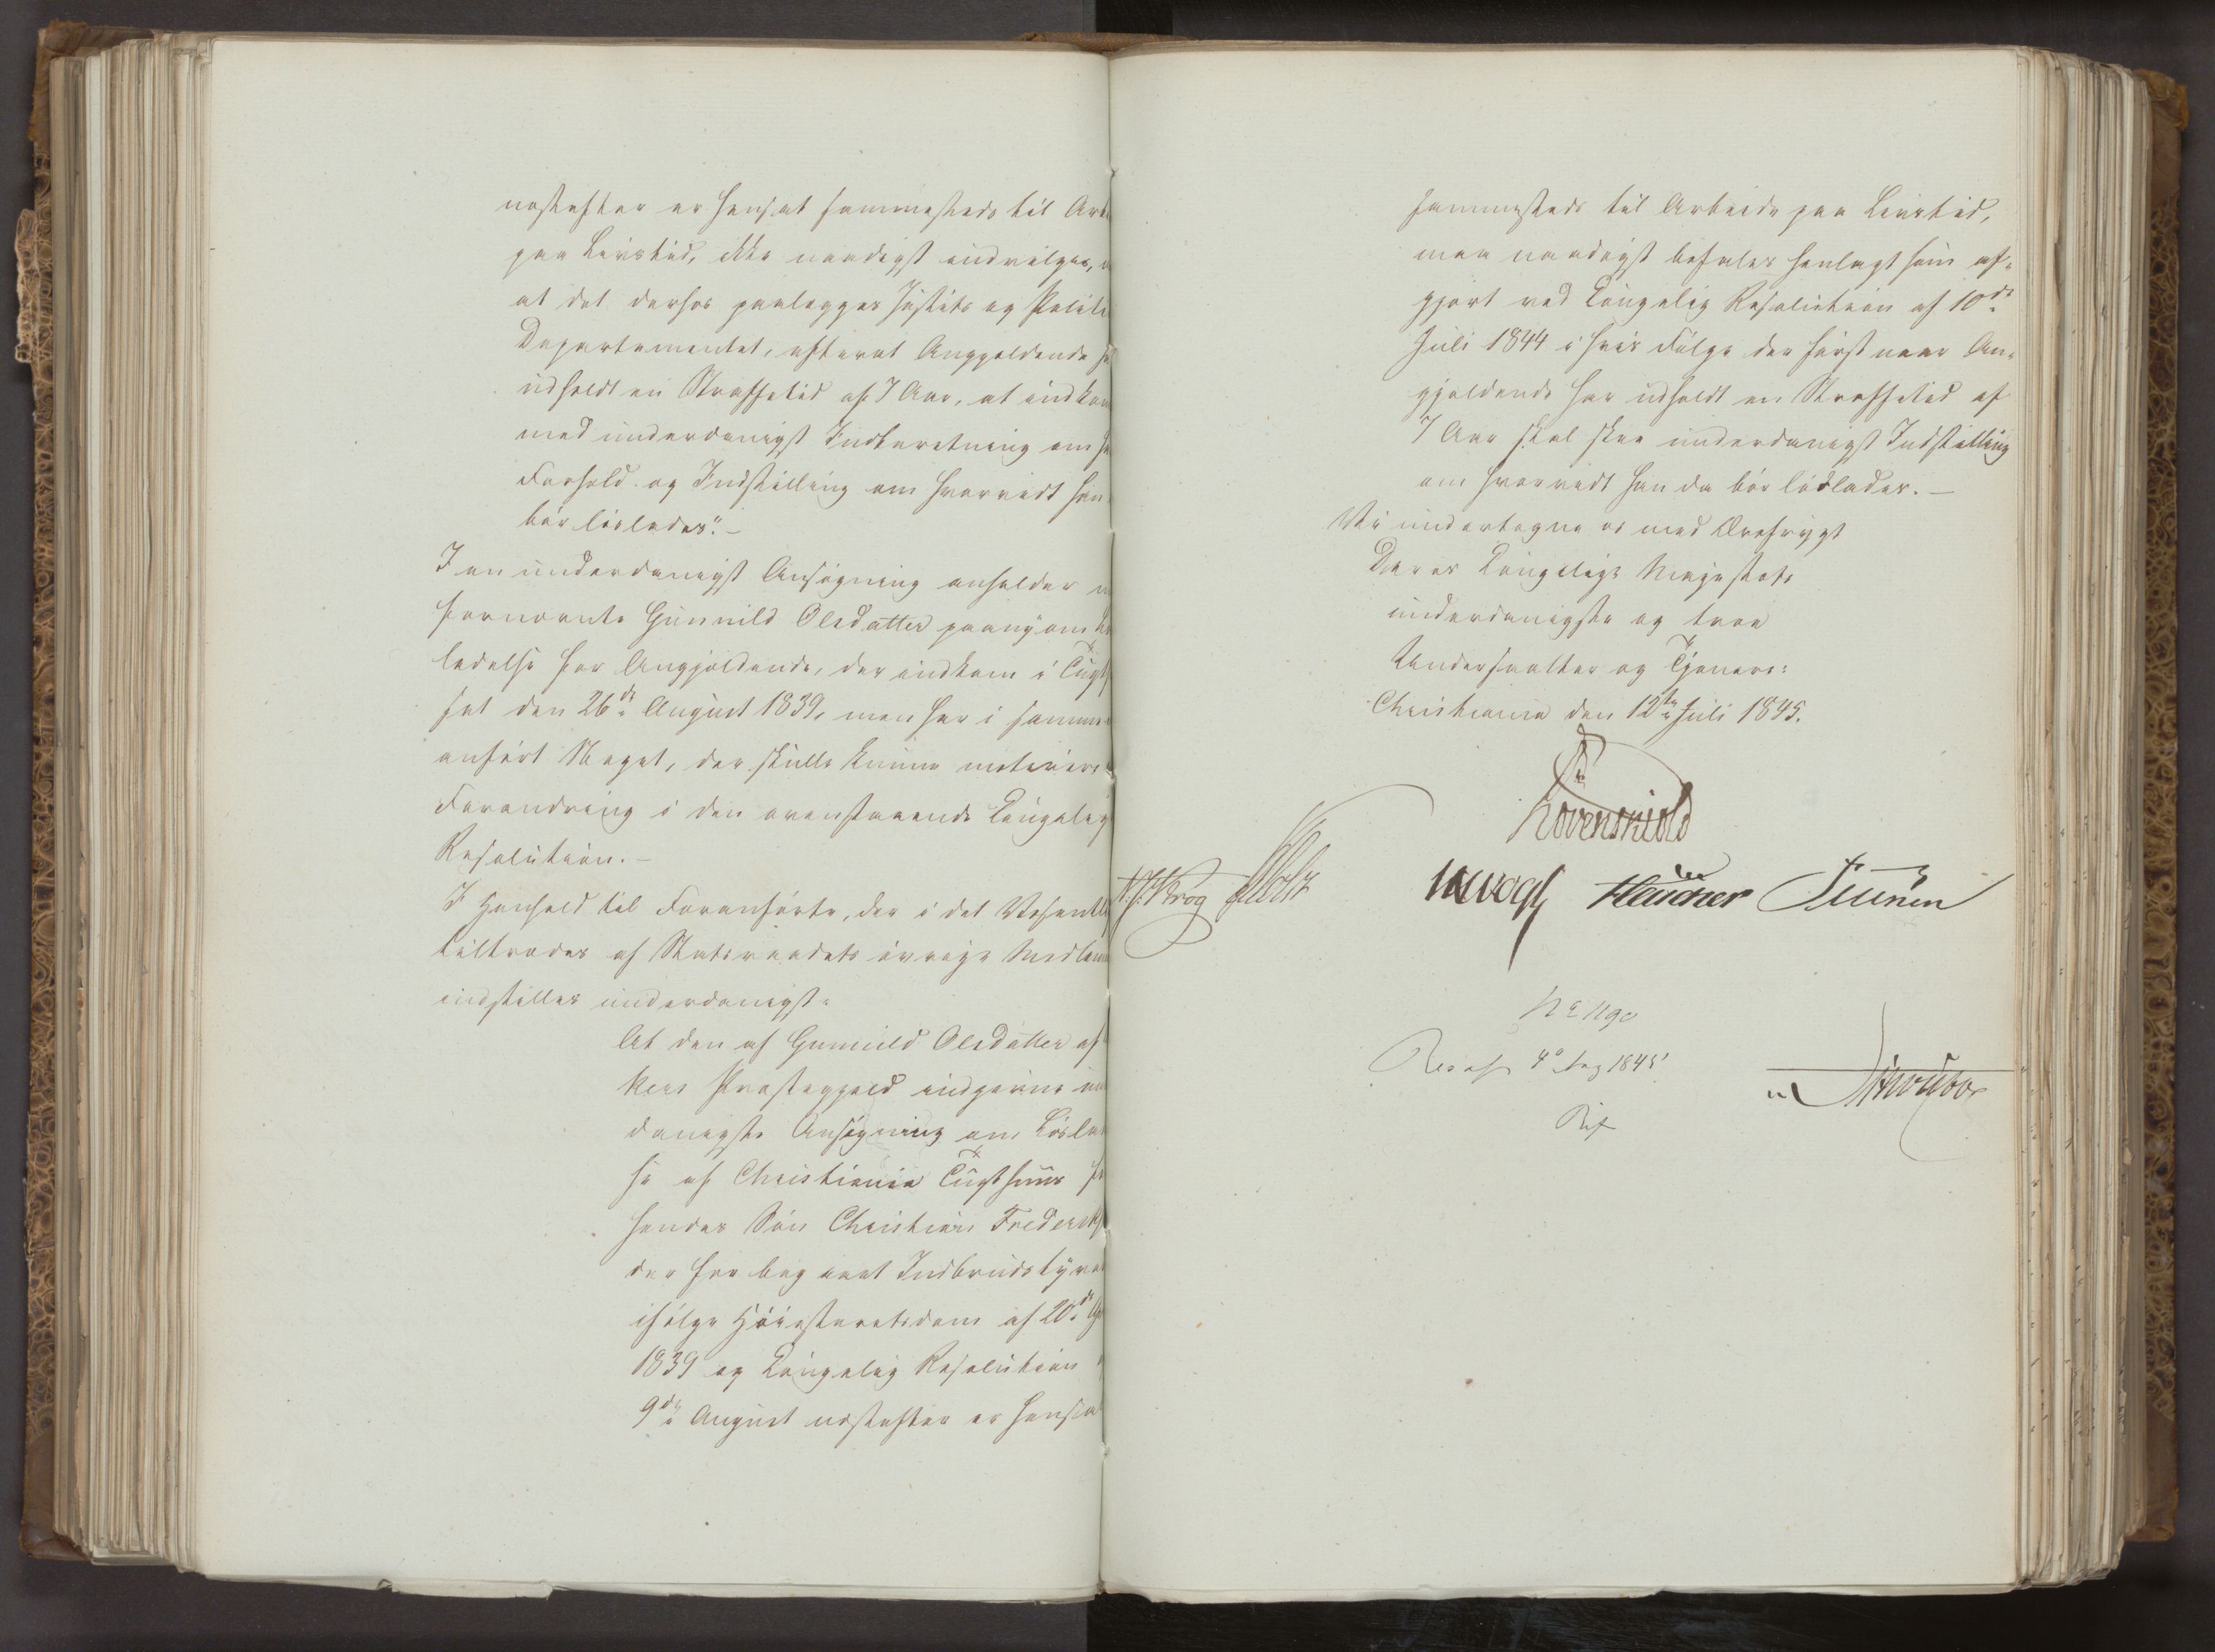 næstefter er hensat sammesteds til Arb
paa Livstid, ikke naadigst indvilges,
at det derhos paalægges Justits og Politi
Departementet, efterat Angjeldende
udholdt en Straffetid af 7 Aar, at indkom
med underdanigst Indberetning om
Forhold og Indstilling om hvorvidt han
bør løslades". —
I en underdanigst Ansøgning anholder
fornævnte Gunnild Olsdatter paany om
ladelse for Angjældende, der indkom i Tugt
set den 26de August 1839, men har i samme
anført Noget, der skulde kunne motivere
Forandring i den ovenstaaende Kongelig
Resolution. —
I Henhold til Foranførte, der i det Væsentl
tiltrædes af Statsraadets øvrige Medlem
indstilles underdanigst:
At den af Gunnild Olsdatter af
kers Præstegjeld indgivne un
danigste Ansøgning om Løsla
se af Christiania Tugthuus
hendes Søn Christian Frederik
der for begaaet Indbrudstyve
ifølge Høiesteretsdom af 20de
1839 og Kongelig Resolution
9de August næstefter er hensa
sammesteds til Arbeide paa Livstid,
maa naadigst befales henlagt som af-
gjort ved Kongelig Resolution af 10de
Juli 1844 i hvis Følge der først naar An-
gjældende har udholdt en Straffetid af
7 Aar skal skee underdanigst Indstilling
om hvorvidt han da bør løslades. —
Vi undertegne os med Ærefrygt
Deres Kongelige Majestæts
underdanigste og troe
Undersaatter og Tjenere:
Christiania den 12te Juli 1845.
Løvenskiold
H. J. Krog Holst Vogt
No 1190
Res af 4de Aug 1845